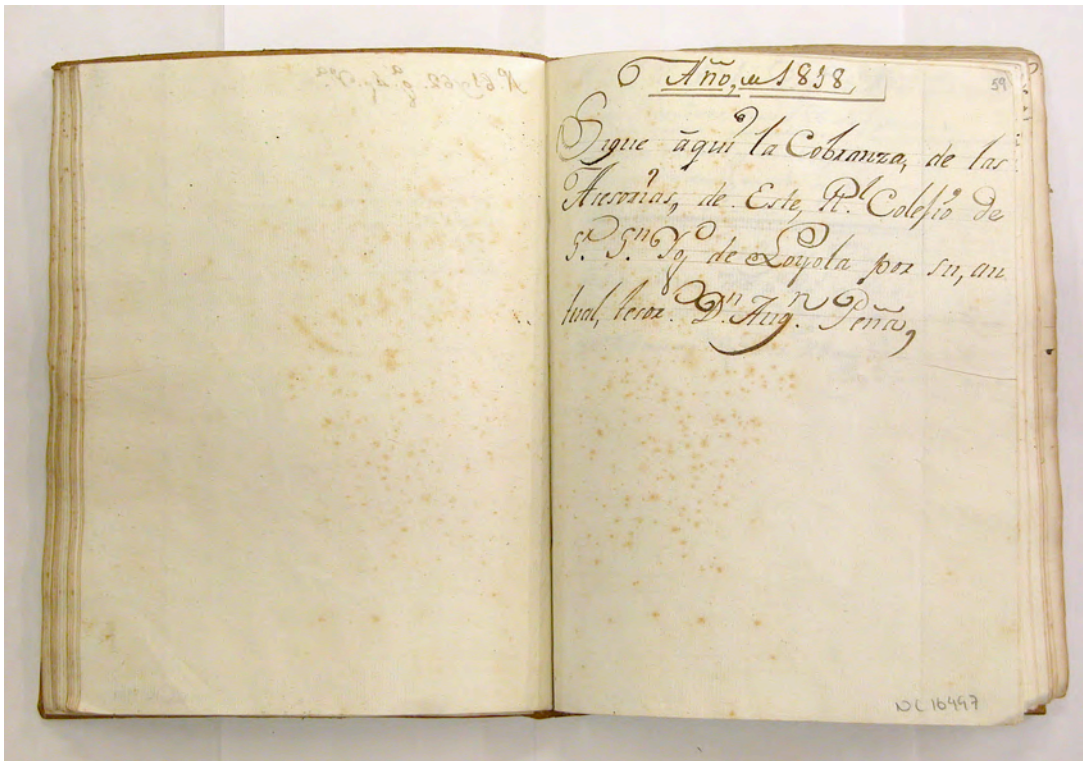 Año, de 1818,
59
Sigue aqui la Cobranza, de las
Acesorias, de Este, Rl. Colegio de
Sr. Sn. Ygo de Loyola por su, au
tual, tesor. Dn. Augn. Peña,
NC 16497